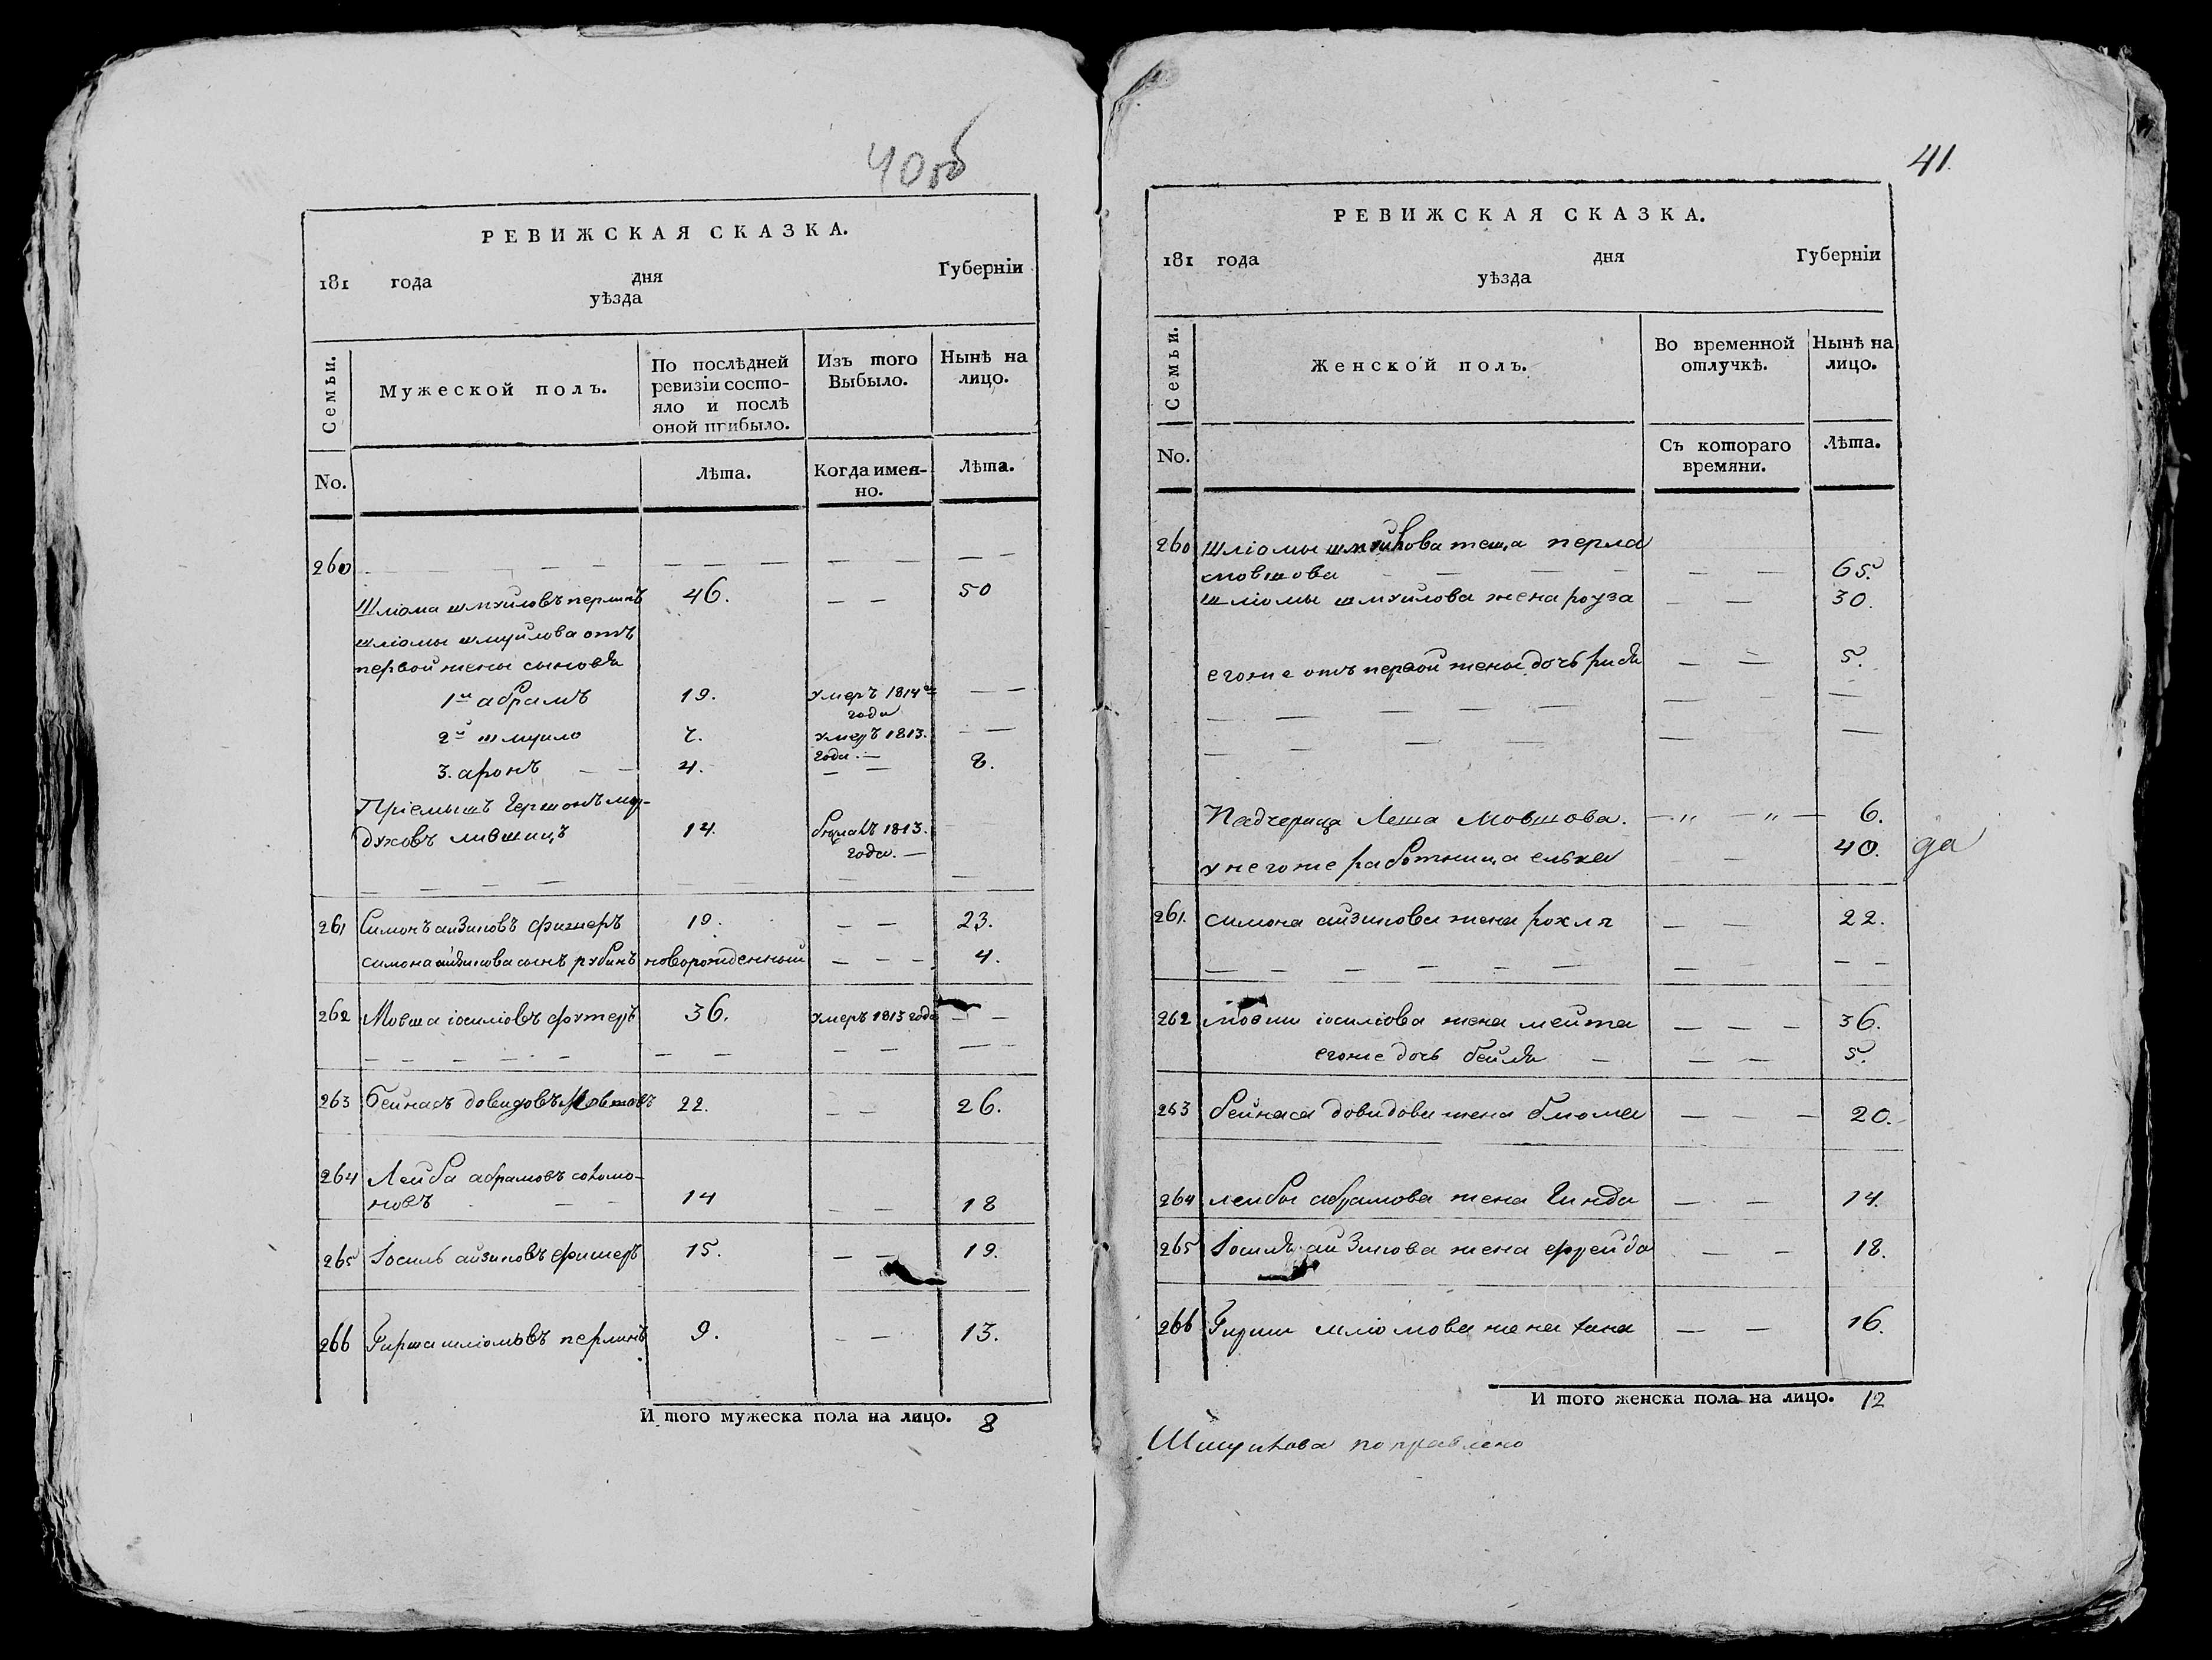 40об
РЕВИЖСКАЯ СКАЗКА.
181 года дня Губерніи
уѣзда
Семьи.
Мужеской полъ.
По послѣдней ревизіи состо-
яло и послѣ
оной прибыло.
Изъ того
Выбыло.
Нынѣ на
лицо.
No.
Лѣта.
Когда имен-
но.
Лѣта.
260
Шліома шмуиловъ перлинъ 46. — — 50
шліомы шмуилова отъ
первой жены сыновя
1й абрамъ 19. умеръ 1814го
года — —
2й шмуило 7. умеръ 1813.
года. — — —
3. аронъ — — 4. — — 8.
Пріемышъ Гершонъ
лившицъ 14. 1813.
года. —
261 Симонъ айзиковъ фишеръ 19. — — 23.
симона айзикова сынъ рубинъ новорожденный — — — 4.
262 Мовша іосиліовъ футеръ 36. умеръ 1813 года — —
263 Бейнасъ довидовъ 22. — — 26.
264 Лейба абрамовъ соломо-
новъ — — 14 — — 18
265 Іосиль айзиковъ фишеръ 15. — — 19.
266 Гирша шліомовъ перлинъ 9. — — 13.
И того мужеска пола на лицо. 8
41.
РЕВИЖСКАЯ СКАЗКА.
181 года дня Губерніи
уѣзда
Семьи.
Женской полъ.
Во временной
отлучкѣ.
Нынѣ на
лицо.
No.
Съ котораго
времяни.
Лѣта.
260 Шліомы теща перла
мовшова — — 65.
шліомы шмуилова жена роуза — — 30.
егоже отъ первой жены дочь — — 5.
Падчерица Леша Мовшова. — „ — „ — 6.
у негоже работница елька — — 40. да
261. симона айзикова жена рохля — — 22.
262 мовши іосиліова жена мейта — — — 36.
егоже дочь бейля — — — 5.
263 бейнаса довидова жена блюма — — — 20.
264 лейбы абрамова жена Гинда — — 14.
265 айзикова жена фрейда — — 18.
266 Гирши шліомова жена хана — — 16.
И того женска пола на лицо. 12
поправлено